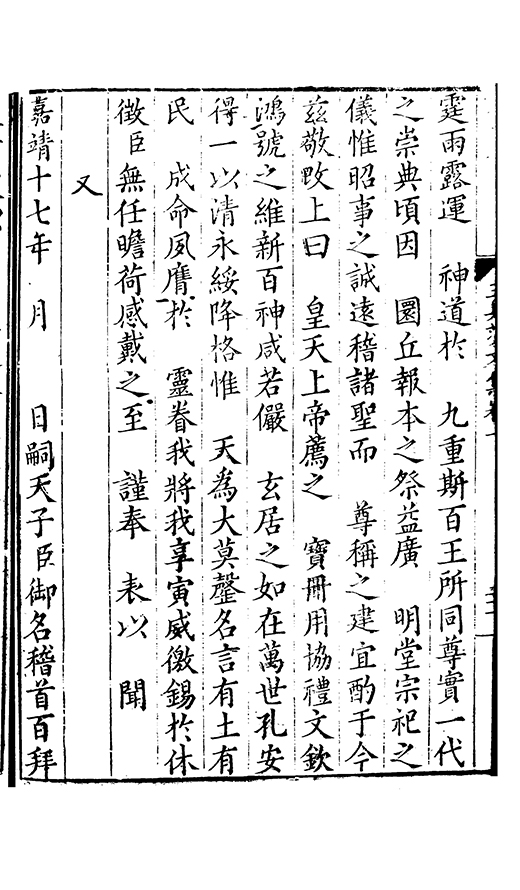 霆雨露運　神道於　九重斯百王所同尊實一代
之崇典頃因　圜丘報本之祭益廣　明堂宗祀之
儀惟昭事之誠遠稽諸聖而　尊稱之建宜酌于今
茲敬改上曰　皇天上帝薦之　寶冊用協禮文欽
鴻號之維新百神咸若儼　玄居之如在萬世孔安
得一以清永綏降格惟　天為大莫罄名言有土有
民　成命夙膺於　靈眷我將我享寅威徼錫於休
徵臣無任瞻荷感戴之至　謹奉　表以　聞
又
嘉靖十七年　月　　日嗣天子臣御名稽首百拜